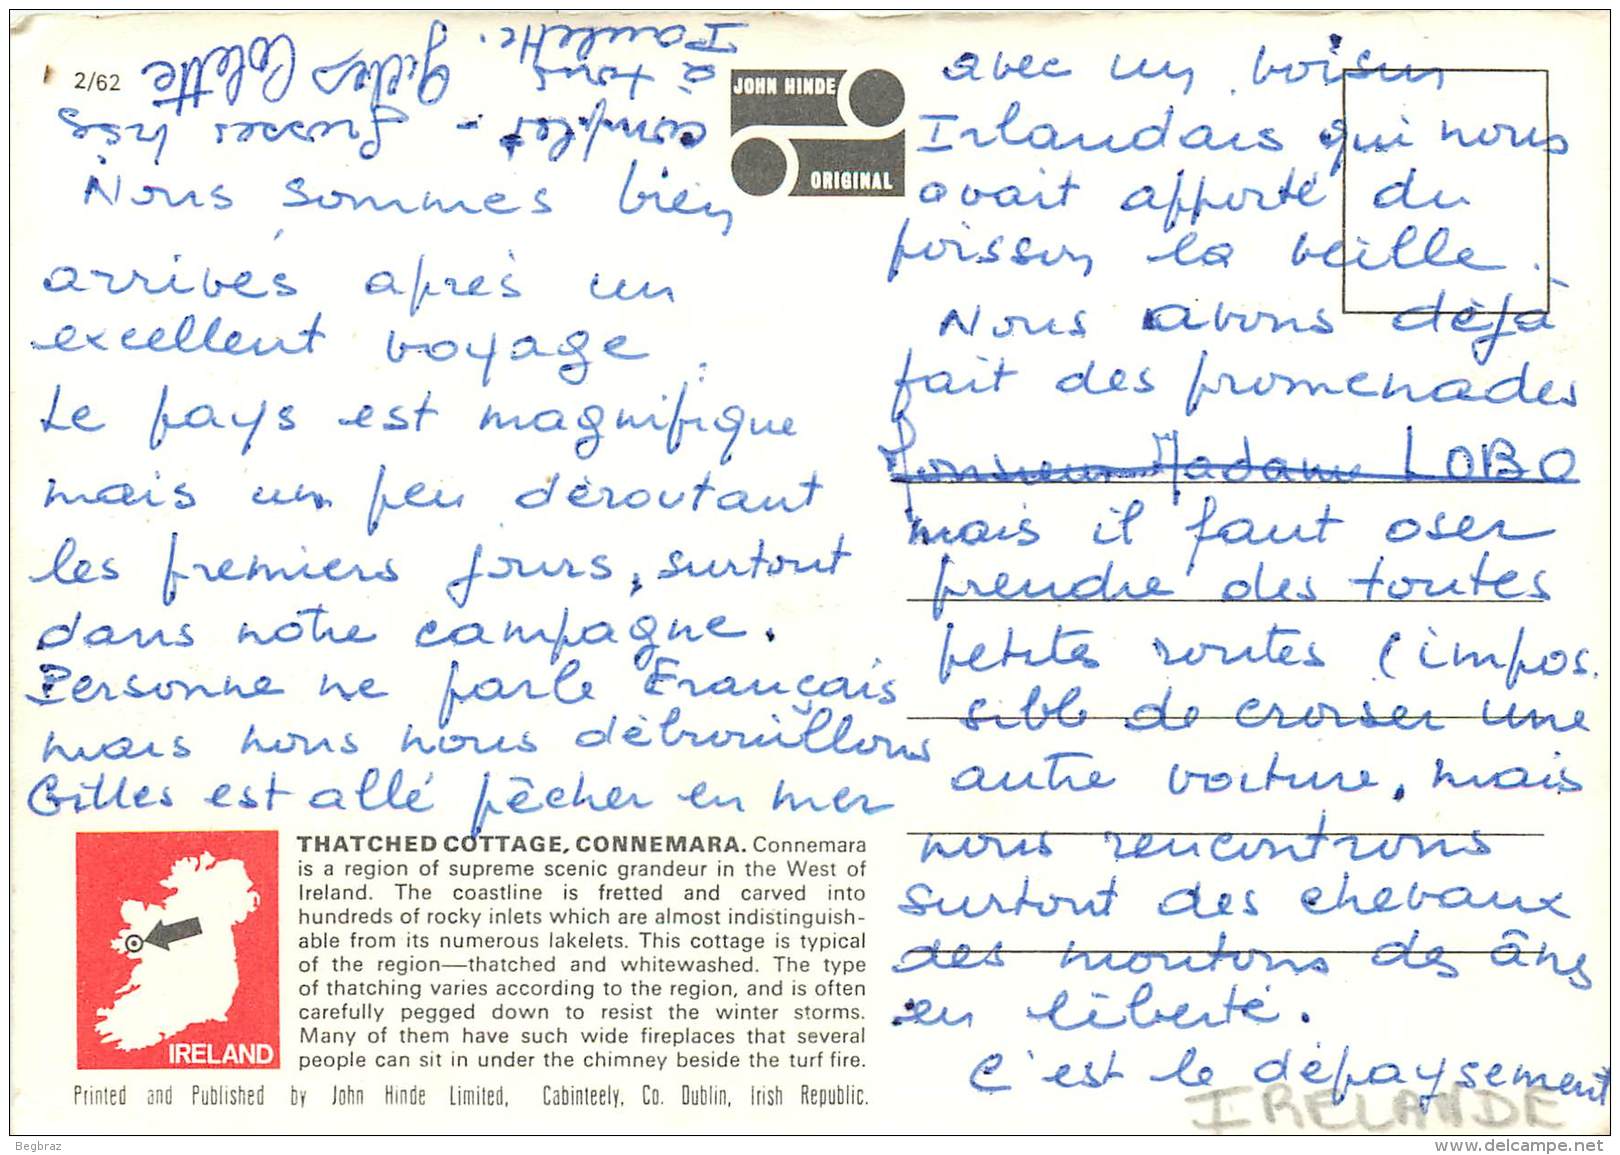 2/62
JOHN HINDE
ORIGINAL
Nous sommes bien
arrivés après un
excellent voyage.
Le pays est magnifique
mais un peu déroutant
les premiers jours, surtout
dans nôtre campagne.
Personne ne parle Français
mais nous nous débrouillons
Gilles est allé pêcher en mer
avec un voisin
Irlandais qui nous
avait apporté du
poisson la veille.
Nous avons déjà
fait des promenades
Monsieur Madame LOBO
mais il faut oser
prendre des toutes
petites routes (impos.
sible de croiser une
autre voiture, mais
nous rencontrons
surtout des chevaux
des moutons des ânes
en liberté.
C'est le dépaysement
complet - grosses bises
à tous Gilles Colette
Paulette.
THATCHED COTTAGE, CONNEMARA. Connemara
is a region of supreme scenic grandeur in the West of
Ireland. The coastline is fretted and carved into
hundreds of rocky inlets which are almost indistinguish-
able from its numerous lakelets. This cottage is typical
of the region—thatched and whitewashed. The type
of thatching varies according to the region, and is often
carefully pegged down to resist the winter storms.
Many of them have such wide fireplaces that several
people can sit in under the chimney beside the turf fire.
IRELAND
Printed and Published by John Hinde Limited, Cabinteely, Co. Dublin, Irish Republic.
IRELANDE
Begbraz
www.delcampe.net